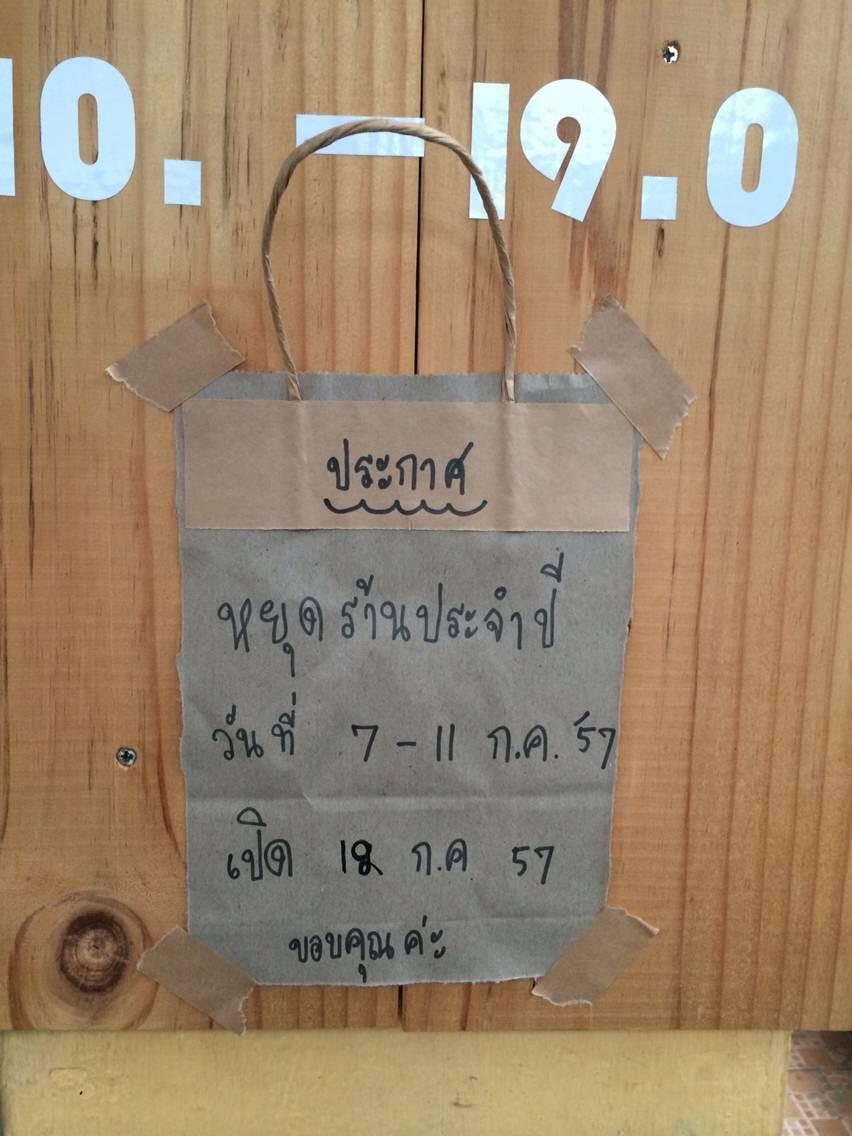 10. - 19.0
ประกาศ
หยุดร้านประจำปี
วันที่ 7 - 11 ก.ค. 57
เปิด 12 ก.ค 57
ขอบคุณค่ะ